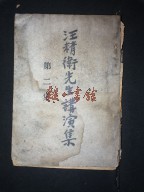 汪精衛先生講演集
第二